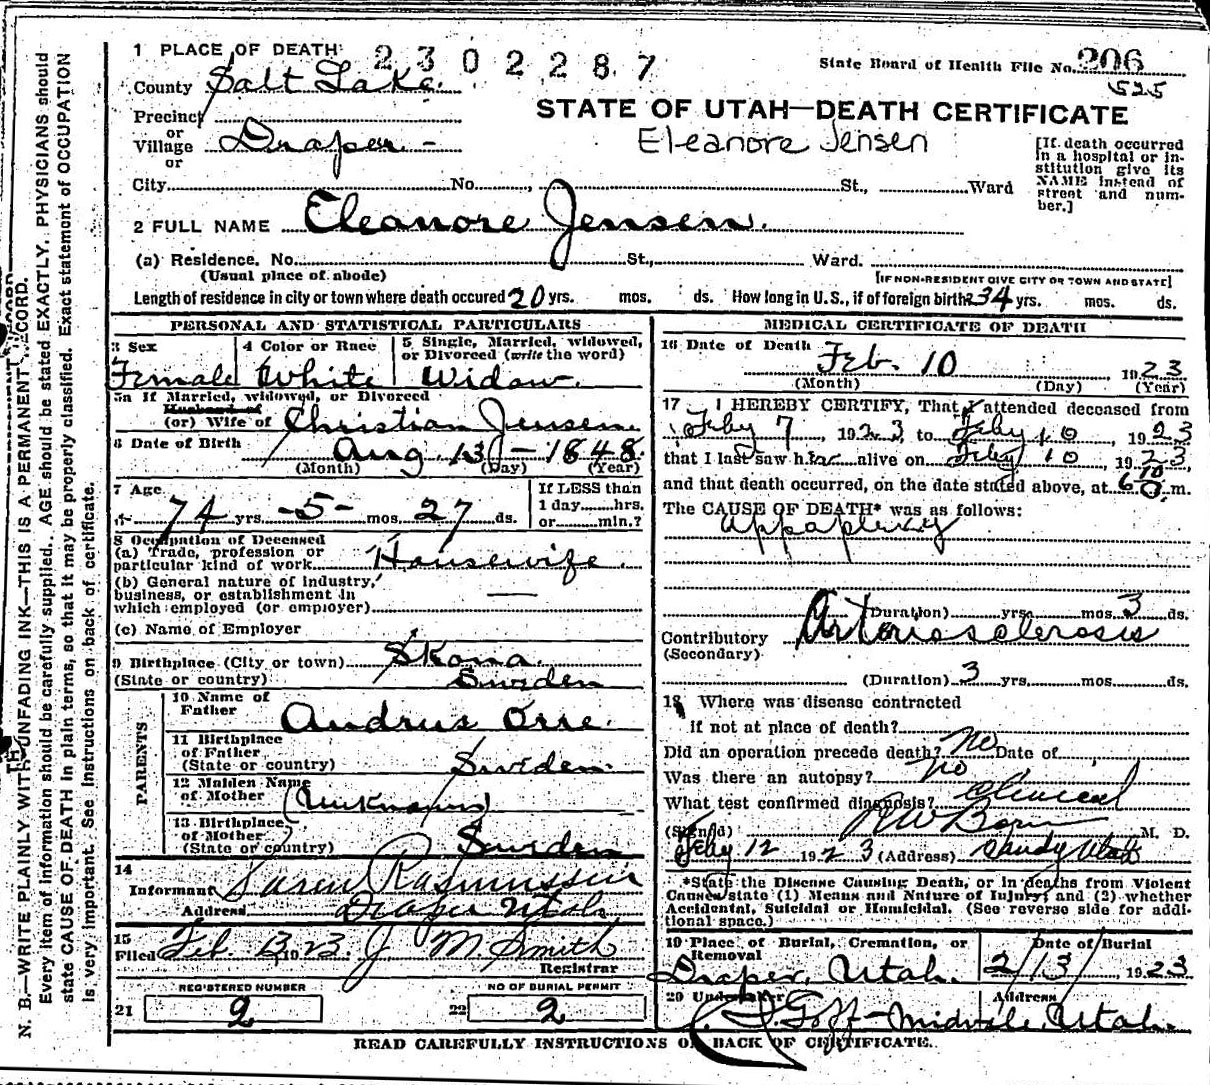 1 PLACE OF DEATH 2302287
State Board of Health File No. 206
County Salt Lake. 525
STATE OF UTAH—DEATH CERTIFICATE
Precinct
or
Village Draper -
or
Eleanore Jensen
[If death occurred in a hospital or institution give its NAME instead of street and number.]
City No. St., Ward
2 FULL NAME Eleanore Jensen.
(a) Residence. No. St., Ward.
(Usual place of abode) [IF NON-RESIDENT GIVE CITY OR TOWN AND STATE]
Length of residence in city or town where death occured 20 yrs. mos. ds. How long in U.S., if of foreign birth? 34 yrs. mos. ds.
PERSONAL AND STATISTICAL PARTICULARS
3 Sex Female
4 Color or Race White
5 Single, Married, widowed, or Divorced (write the word) Widow.
5a If Married, widowed, or Divorced
Husband of
(or) Wife of Christian Jensen
6 Date of Birth Aug 13 - 1848
(Month) (Day) (Year)
7 Age 74 yrs. -5- mos. 27 ds.
If LESS than 1 day........hrs. or........min.?
8 Occupation of Deceased
(a) Trade, profession or particular kind of work Housewife.
(b) General nature of industry, business, or establishment in which employed (or employer) —
(c) Name of Employer
9 Birthplace (City or town) Skona.
(State or country) Sweden
PARENTS
10 Name of Father Andrus Orre.
11 Birthplace of Father (State or country) Sweden.
12 Maiden Name of Mother (Unknown)
13 Birthplace of Mother (State or country) Sweden
14
Informant Karen Rasmussen
Address Draper Utah.
15
Filed Feb. 13 1923. J M. Smith
Registrar
REGISTERED NUMBER
21 2
NO OF BURIAL PERMIT
22 2
MEDICAL CERTIFICATE OF DEATH
16 Date of Death Feb. 10 1923
(Month) (Day) (Year)
17 I HEREBY CERTIFY, That I attended deceased from
Feby 7, 1923 to Feby 10, 1923
that I last saw her alive on Feby 10, 1923
and that death occurred, on the date stated above, at 6 10 m.
The CAUSE OF DEATH* was as follows:
Appaplexy
(Duration) yrs. mos. 3 ds.
Contributory Arteriosclerosis
(Secondary)
(Duration) 3 yrs. mos. ds.
18 Where was disease contracted
if not at place of death?
Did an operation precede death? No Date of
Was there an autopsy? No
What test confirmed diagnosis? Clinical
(Signed) M. D.
Feby 12 1923 (Address) Sandy Utah
*State the Disease Causing Death, or in deaths from Violent Causes state (1) Means and Nature of Injury; and (2) whether Accidental, Suicidal or Homicidal. (See reverse side for additional space.)
19 Place of Burial, Cremation, or Removal Draper, Utah.
Date of Burial 2/13/ 1923
20 Undertaker Goff - Midvale, Utah.
Address
READ CAREFULLY INSTRUCTIONS ON BACK OF CERTIFICATE.
N. B.—WRITE PLAINLY WITH UNFADING INK—THIS IS A PERMANENT RECORD.
Every item of information should be carefully supplied. AGE should be stated EXACTLY. PHYSICIANS should
state CAUSE OF DEATH in plain terms, so that it may be properly classified. Exact statement of OCCUPATION
is very important. See instructions on back of certificate.